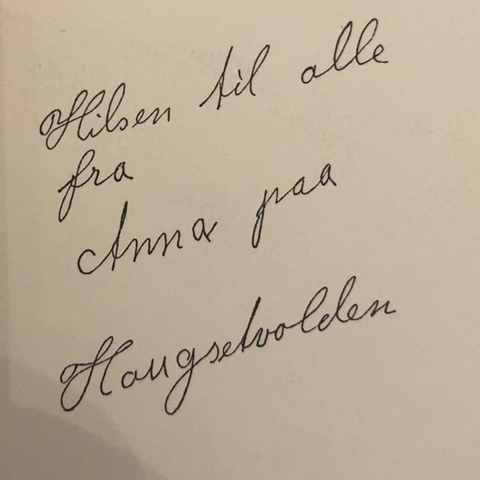 Hilsen til alle
fra
Anna paa
Haugsetvolden